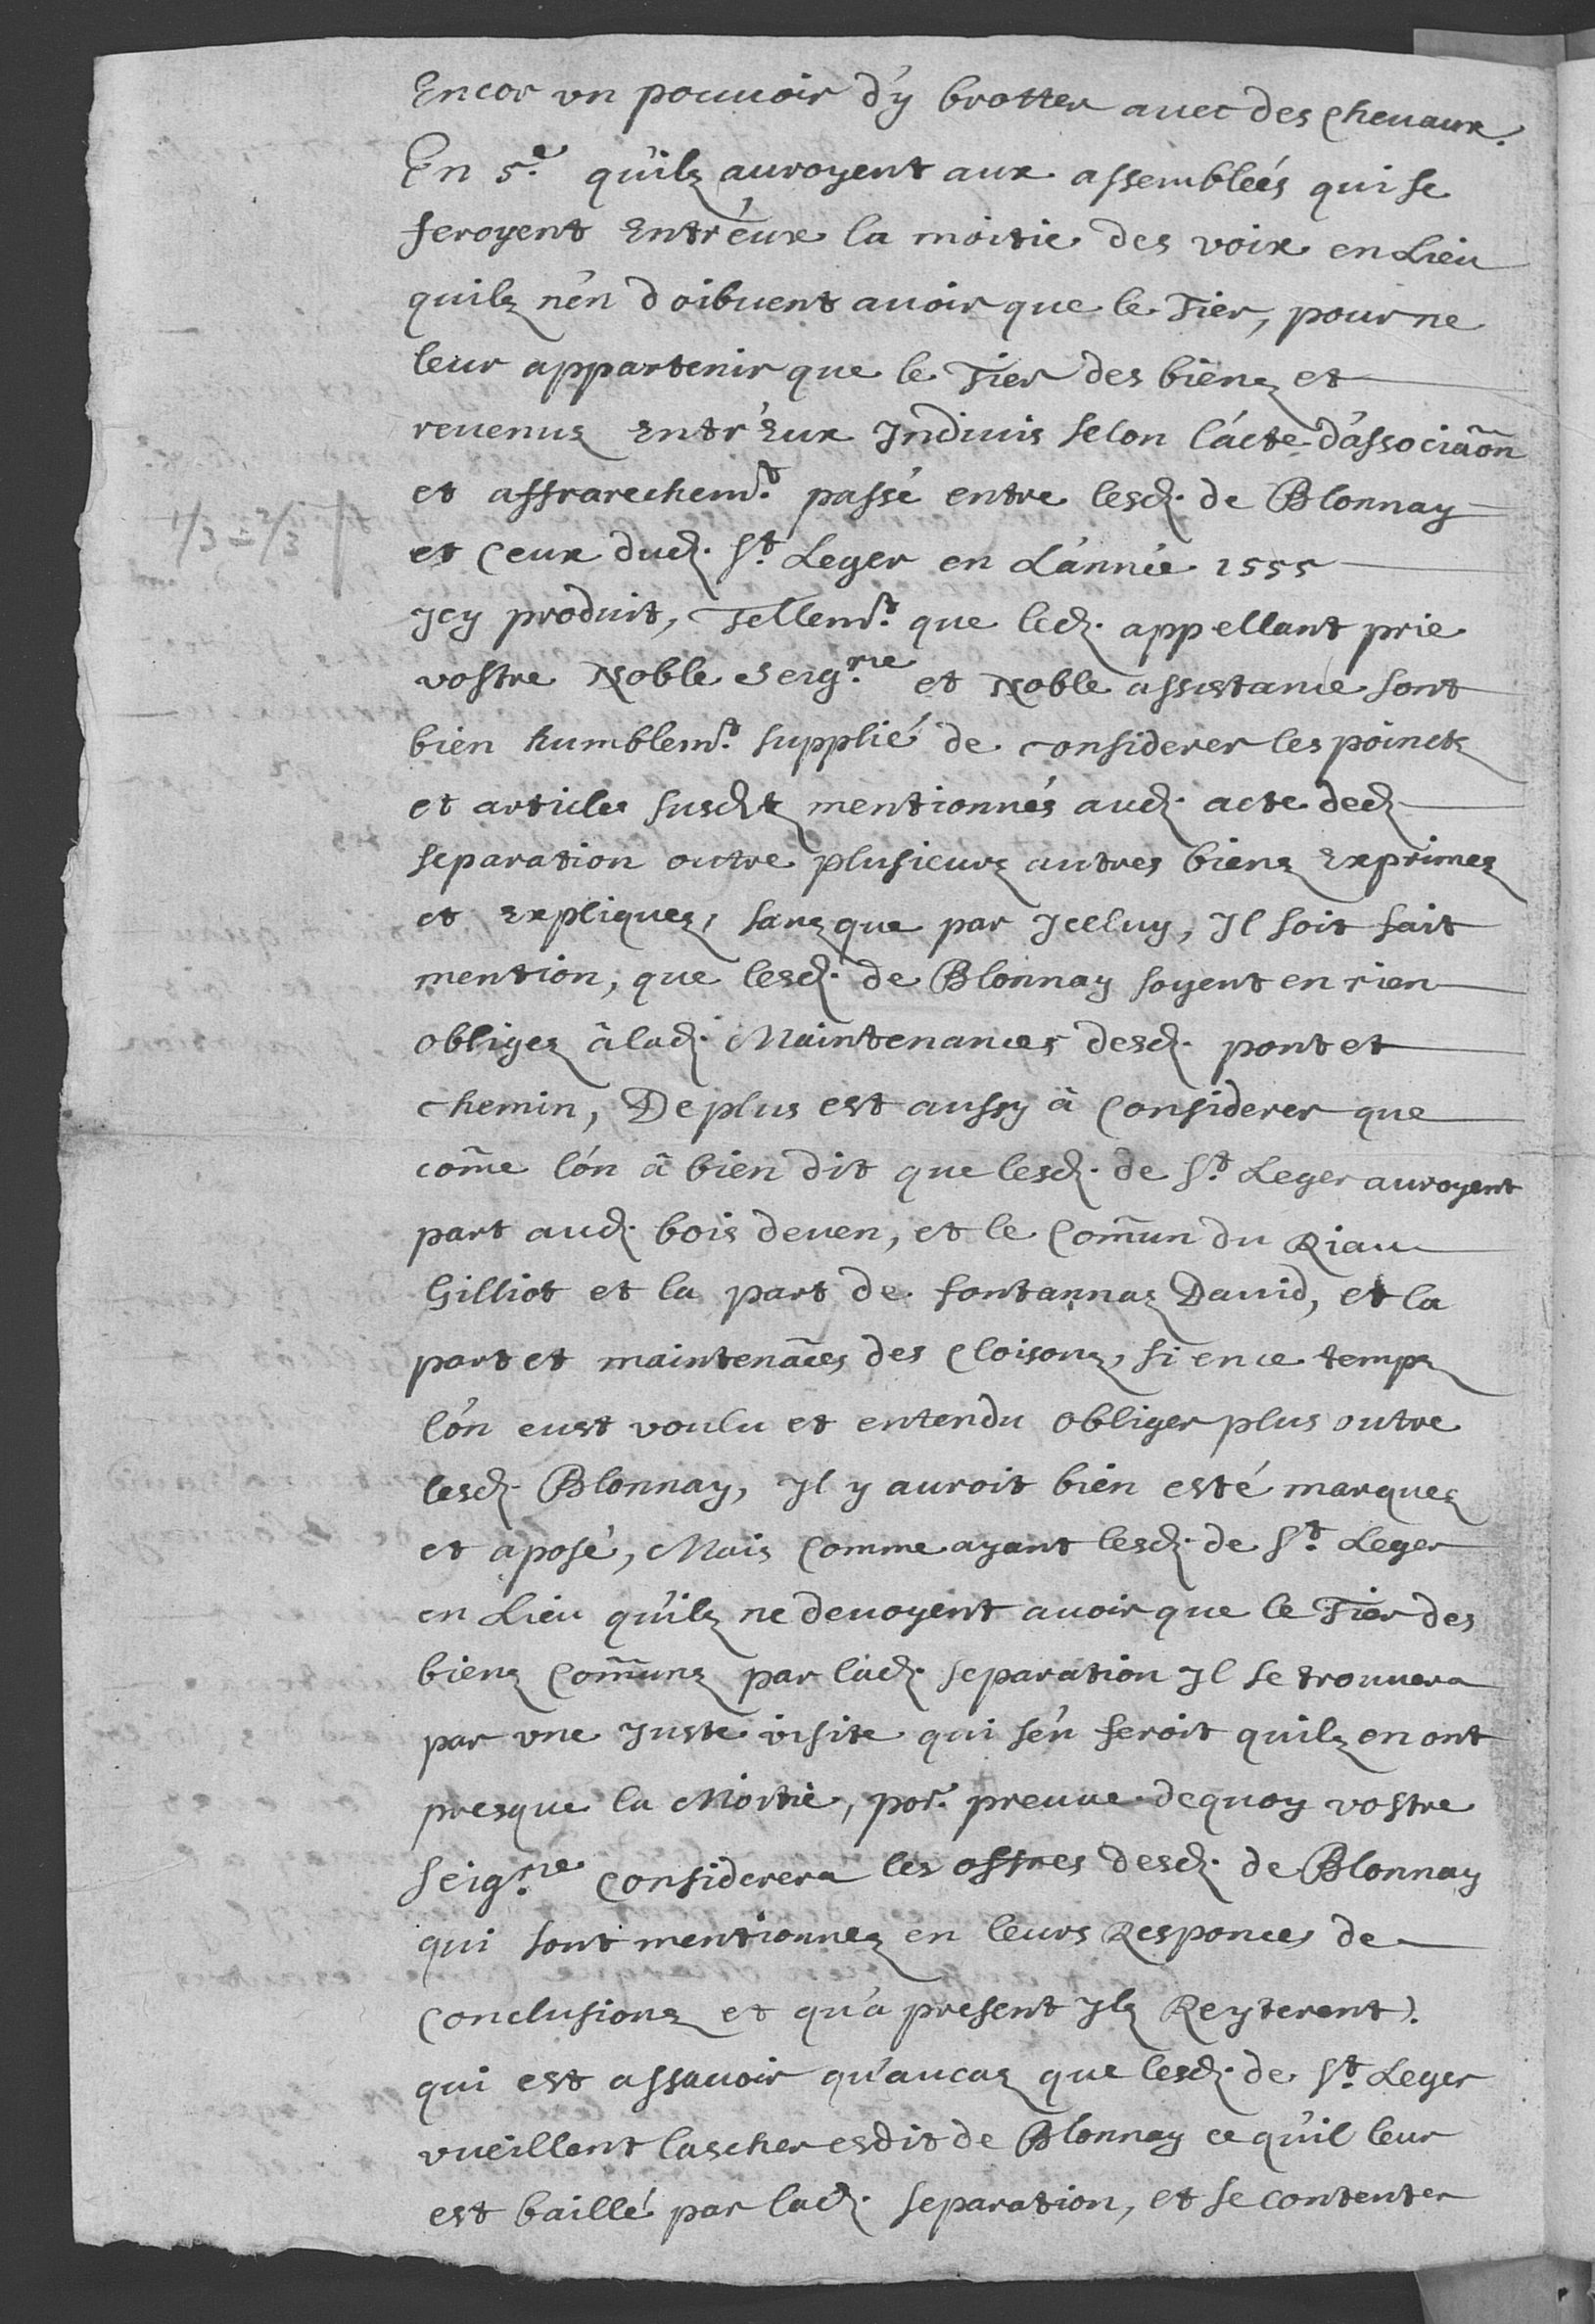 Encor vn pouuoir d'y brotter auec des cheuaux.
En 5.e qu'ilz auroyent aux assembleés qui se
feroyent Entr'eux la moitie des voix en Lieu
quilz n'en doibuent auoir que le Tier, pour ne
leur appartenir que le Tier des bienz et
reuenuz Entr'Eux Indiuis selon l'acte d'associaõn
et affrarechem.t passé entre lesd. de Blonnay
1/3 = 2/3
et ceux dud. S.t Leger en L'année 1555
Jcy produit, Tellem.t que led. appellant prie
vostre Noble Seig.rie et Noble assistance sont
bien humblem.t supplié de considerer les poinctz
et articles susdtz mentionnés aud. acte ded
separation outre plusieurz autres bienz Exprimez
et Expliquez, sanz que par Jcelluy, Jl soit fait
mention, que lesd. de Blonnay soyent en rien
obligez â lad. Maintenances desd. pont et
chemin, De plus est aussy â considerer que
com̃e l'on â bien dit que lesd. de S.t Leger auroyent
part aud. bois deuen, et le Com̃un du Riau
Gilliot et la part de fontannaz Dauid, et la
part et maintenãces des cloisonz, si en ce tempz
l'on eust voulu et entendu obliger plus outre
lesd. Blonnay, Jl y auroit bien esté marquez
et aposé, Mais comme ayant lesd. de S.t Leger
en Lieu qu'ilz ne deuoyent auoir que le Tier des
bienz Com̃unz par lad. separation Jl se trouuera
par vne Juste visite qui s'en feroit quilz en ont
presque la Moitie, por. preuue dequoy vostre
Seig.rie considerera les offres desd. de Blonnay
qui sont mentionnez en leurs Responces de
conclusionz et qu'a present Jlz Reyterent).
qui est assauoir qu'aucaz que lesd. de S.t Leger
vueillent lascher esdit de Blonnay ce qu'il leur
est baillé par lad. separation, et se contenter